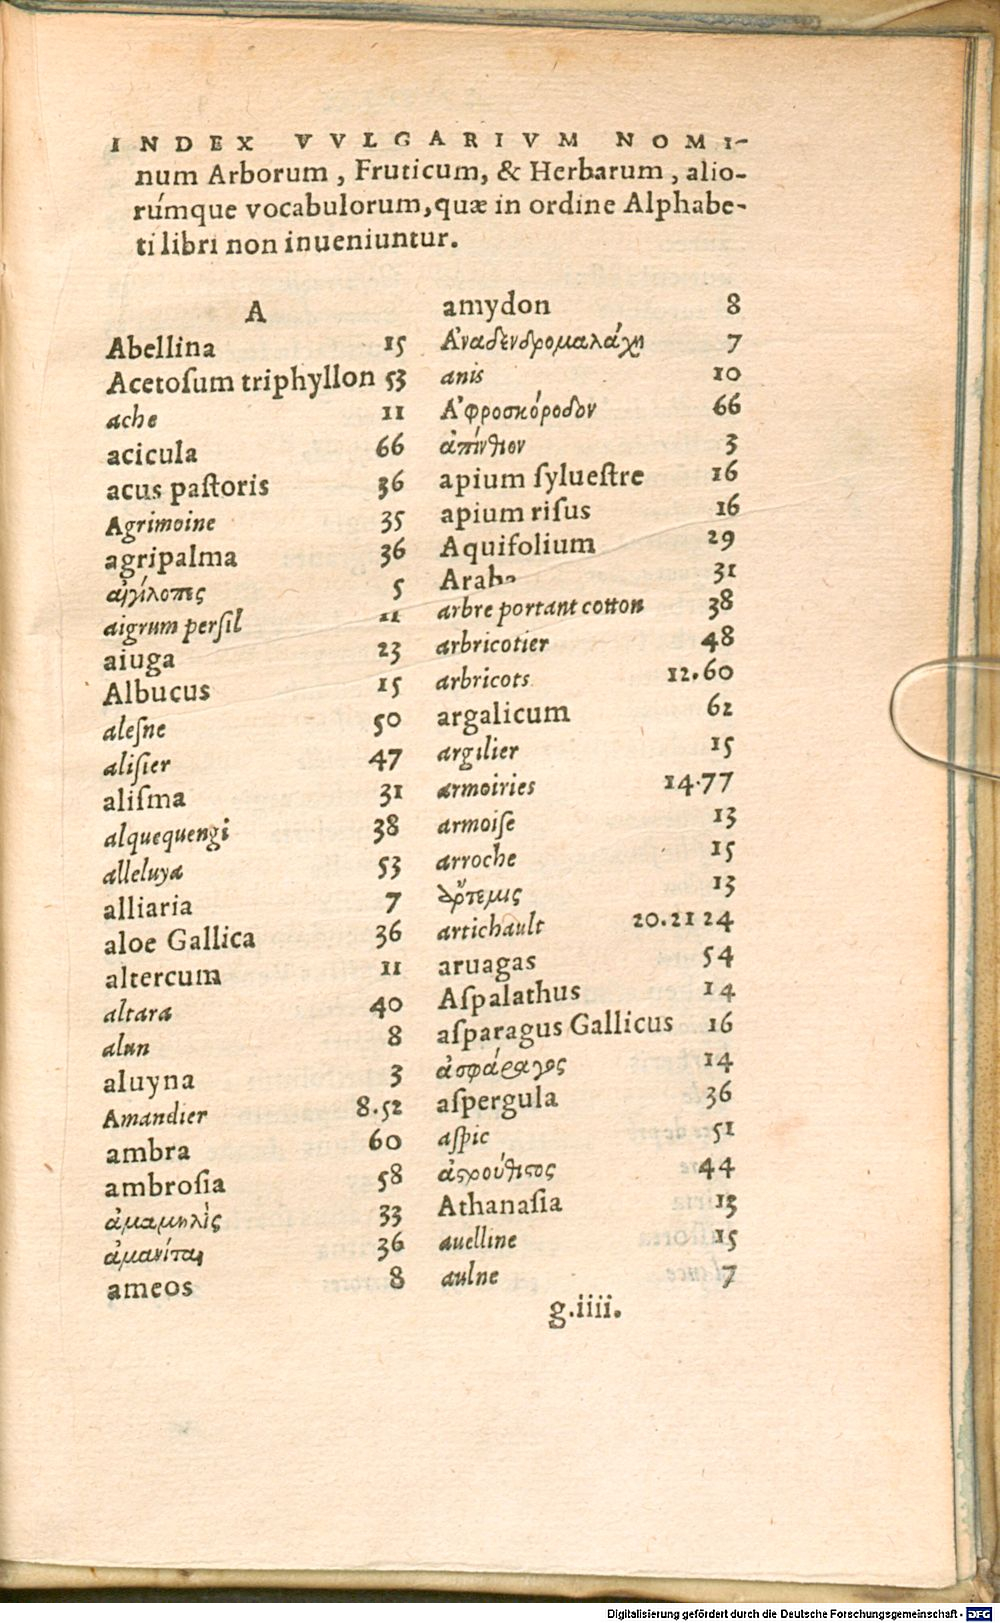 INDEX VVLGARIVM NOMI-
num Arborum, Fruticum, & Herbarum, alio-
rúmque vocabulorum, quæ in ordine Alphabe-
ti libri non inueniuntur.
A
Abellina 15
Acetoſum triphyllon 53
ache 11
acicula 66
acus paſtoris 36
Agrimoine 35
agripalma 36
αἰγίλοπες 5
aigrum perſil 11
aiuga 23
Albucus 15
aleſne 50
aliſier 47
aliſma 31
alquequengi 38
alleluya 53
alliaria 7
aloe Gallica 36
altercum 11
altara 40
alun 8
aluyna 3
Amandier 8.52
ambra 60
ambroſia 58
ἁμαμηλὶς 33
ἀμανίται 36
ameos 8
amydon 8
Ἀναδενδρομαλάχη 7
anis 10
Ἀφροσκόροδον 66
ἀπίνθιον 3
apium ſylueſtre 16
apium riſus 16
Aquifolium 29
Araba 31
arbre portant cotton 38
arbricotier 48
arbricots 12.60
argalicum 62
argilier 15
armoiries 14.77
armoiſe 13
arroche 15
ἄρτεμις 13
artichault 20.21 24
aruagas 54
Aſpalathus 14
aſparagus Gallicus 16
ἀσφάραγος 14
aſpergula 36
aſpic 51
ἀστρούθιστος 44
Athanaſia 13
auelline 15
aulne 7
g.iiii.
Digitalisierung gefördert durch die Deutsche Forschungsgemeinschaft - DFG